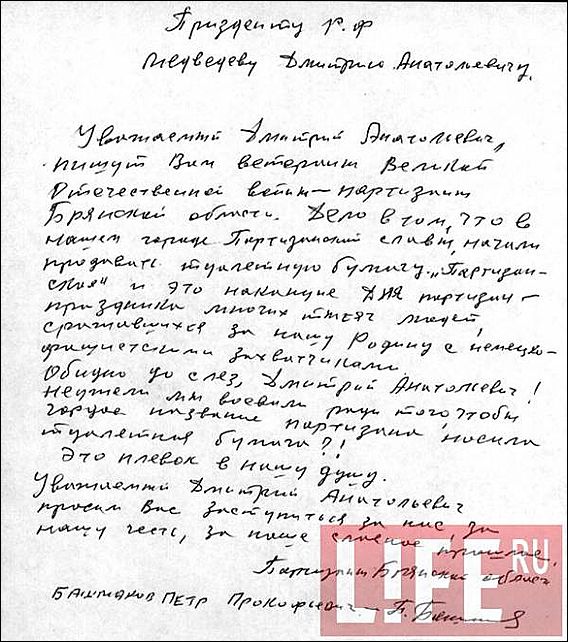 Призденту Р.Ф
Медведеву Дмитрию Анатольевичу.
Уважаемый Дмитрий Анатольевич,
пишут Вам ветераны Великой
Отечественной войны – партизаны
Брянской области. Дело в том, что в
нашем городе Партизанской славы, начали
продавать туалетную бумагу „Партизан-
ская" и это накануне Дня партизан –
праздника многих тысяч людей,
сражавшихся за нашу Родину с немецко-
фашистскими захватчиками.
Обидно до слез, Дмитрий Анатольевич!
Неужели мы воевали ради того, чтобы
гордое название партизана носила
туалетная бумага?!
Это плевок в нашу душу.
Уважаемый Дмитрий Анатольевич
просим Вас заступиться за нас, за
нашу честь, за наше славное прошлое.
Партизаны Брянской области
Башмаков Петр Прокофьевич –
LIFE.RU